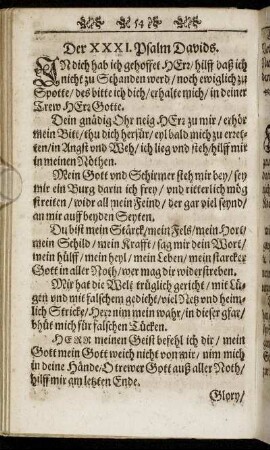 54
Der XXXI. Psalm Davids.
IN dich hab ich gehoffet HErr/ hilff daß ich
nicht zu Schanden werd/ noch ewiglich zu
Spotte/ des bitte ich dich/ erhalte mich/ in deiner
Trew HErr Gotte.
Dein gnädig Ohr neig HErr zu mir/ erhör
mein Bitt/ thu dich herfür/ eyl bald mich zu erret-
ten/ in Angst und Weh/ ich lieg und steh/ hilff mir
in meinen Nöthen.
Mein Gott und Schirmer steh mir bey/ sey
mir ein Burg darin ich frey/ und ritterlich mög
streiten/ widr all mein Feind/ der gar viel seynd/
an mir auff beyden Seyten.
Du bist mein Stärck/ mein Fels/ mein Hort/
mein Schild/ mein Krafft/ sag mir dein Wort/
mein hülff/ mein heyl/ mein Leben/ mein starcker
Gott in aller Noth/ wer mag dir widerstreben.
Mir hat die Welt trüglich gericht/ mit Lü-
gen und mit falschem gedicht/ viel Netz und heim-
lich Stricke/ Herr nim mein wahr/ in dieser gfar/
bhüt mich für falschen Tücken.
HERR meinen Geist befehl ich dir/ mein
Gott mein Gott weich nicht von mir/ nim mich
in deine Hände/ O trewer Gott auß aller Noth/
hilff mir am letzten Ende.
Glory/